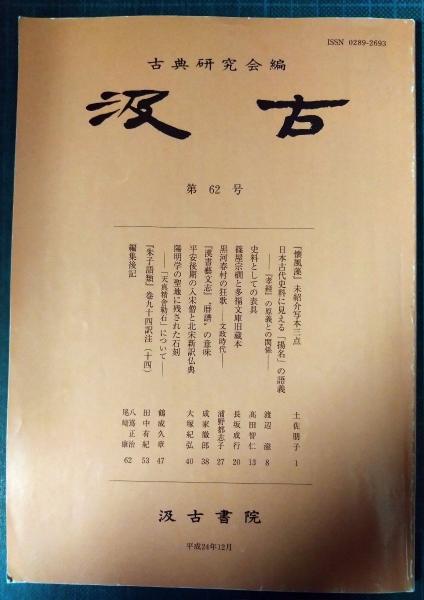 ISSN 0289-2693
古典研究会編
汲古
第62号
『懐風藻』未紹介写本三点
土佐朋子 1
日本古代史料に見える「揚名」の語義
――『孝経』の原義との関係――
渡辺滋 8
史料としての表具
高田智仁 13
篠屋宗礀と多福文庫旧蔵本
長坂成行 20
黒河春村の狂歌――文政時代――
浦野都志子 27
『漢書藝文志』"暦譜"の意味
成家徹郎 38
平安後期の入宋僧と北宋新訳仏典
大塚紀弘 40
陽明学の聖地に残された石刻
――「天真精舎勒石」について――
鶴成久章 47
『朱子語類』巻九十四訳注(十四)
田中有紀 53
編集後記
八嶌正治
尾崎康 62
汲古書院
平成24年12月